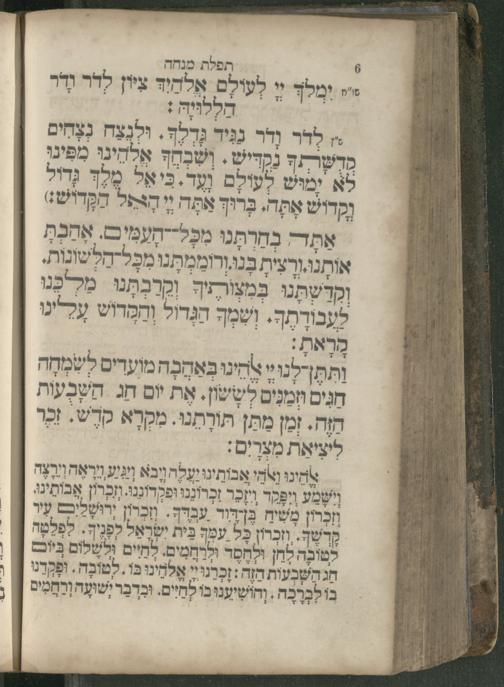 תפלת מנחה 6
סו״ח יִמְלֹךְ יְיָ לְעוֹלָם אֱלֹהַיִךְ צִיּוֹן לְדֹר וָדֹר
הַלְלוּיָהּ:
ש״ץ לְדֹר וָדֹר נַגִּיד גָּדְלֶךָ. וּלְנֵצַח נְצָחִים
קְדֻשָּׁתְךָ נַקְדִּישׁ. וְשִׁבְחֲךָ אֱלֹהֵינוּ מִפִּינוּ
לֹא יָמוּשׁ לְעוֹלָם וָעֶד. כִּי אֵל מֶלֶךְ גָּדוֹל
וְקָדוֹשׁ אָתָּה. בָּרוּךְ אַתָּה יְיָ הָאֵל הַקָּדוֹשׁ:)
אַתָּה בְחַרְתָּנוּ מִכָּל־הָעַמִּים. אָהַבְתָּ
אוֹתָנוּ. וְרָצִיתָ בָּנוּ. וְרוֹמַמְתָּנוּ מִכָּל־הַלְּשׁוֹנוֹת.
וְקִדַּשְׁתָּנוּ בְּמִצְוֹתֶיךָ וְקֵרַבְתָּנוּ מַלְכֵּנוּ
לַעֲבוֹדָתֶךָ. וְשִׁמְךָ הַגָּדוֹל וְהַקָּדוֹשׁ עָלֵינוּ
קָרָאתָ:
וַתִּתֶּן־לָנוּ יְיָ אֱלֹהֵינוּ בְּאַהֲבָה מוֹעֲדִים לְשִׂמְחָה
חַגִּים וּזְמַנִּים לְשָׂשׂוֹן. אֶת יוֹם חַג הַשָּׁבֻעוֹת
הַזֶּה. זְמַן מַתַּן תּוֹרָתֵנוּ. מִקְרָא קֹדֶשׁ. זֵכֶר
לִיצִיאַת מִצְרָיִם:
אֱלֹהֵינוּ וֵאלֹהֵי אֲבוֹתֵינוּ יַעֲלֶה וְיָבֹא וְיַגִּיעַ, וְיֵרָאֶה וְיֵרָצֶה
וְיִשָּׁמַע וְיִפָּקֵד וְיִזָּכֵר זִכְרוֹנֵנוּ וּפִקְדוֹנֵנוּ. וְזִכְרוֹן אֲבוֹתֵינוּ.
וְזִכְרוֹן מָשִׁיחַ בֶּן־דָּוִד עַבְדֶּךָ. וְזִכְרוֹן יְרוּשָׁלַיִם עִיר
קָדְשֶׁךָ. וְזִכְרוֹן כָּל עַמְּךָ בֵּית יִשְׂרָאֵל לְפָנֶיךָ. לִפְלֵטָה
לְטוֹבָה לְחֵן וּלְחֶסֶד וּלְרַחֲמִים. לְחַיִּים וּלְשָׁלוֹם בְּיוֹם
חַג הַשָּׁבֻעוֹת הַזֶּה: זָכְרֵנוּ יְיָ אֱלֹהֵינוּ בּוֹ. לְטוֹבָה. וּפָקְדֵנוּ
בוֹ לִבְרָכָה. וְהוֹשִׁיעֵנוּ בוֹ לְחַיִּים. וּבִדְבַר יְשׁוּעָה וְרַחֲמִים